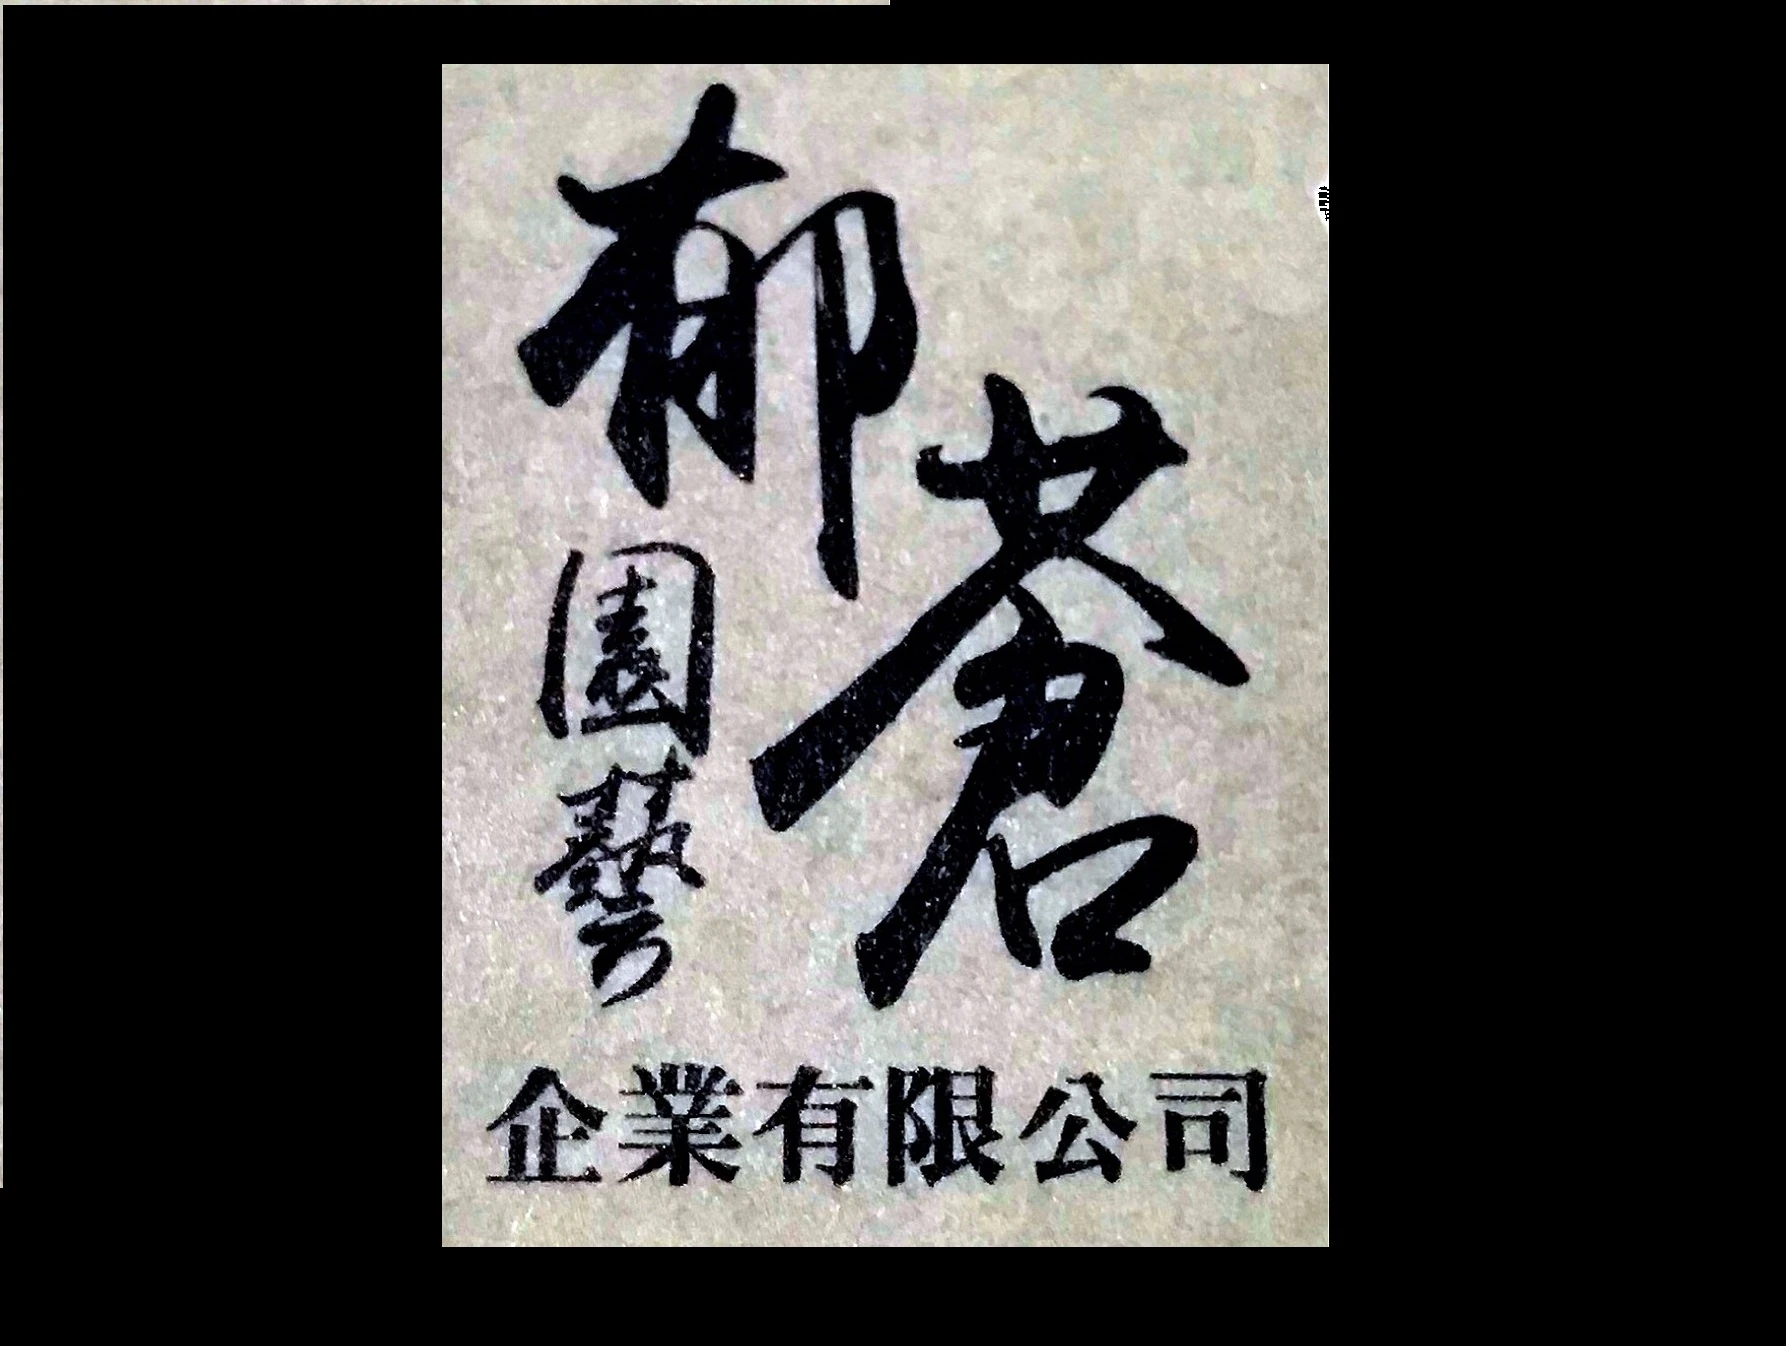 郁蒼
園藝
企業有限公司